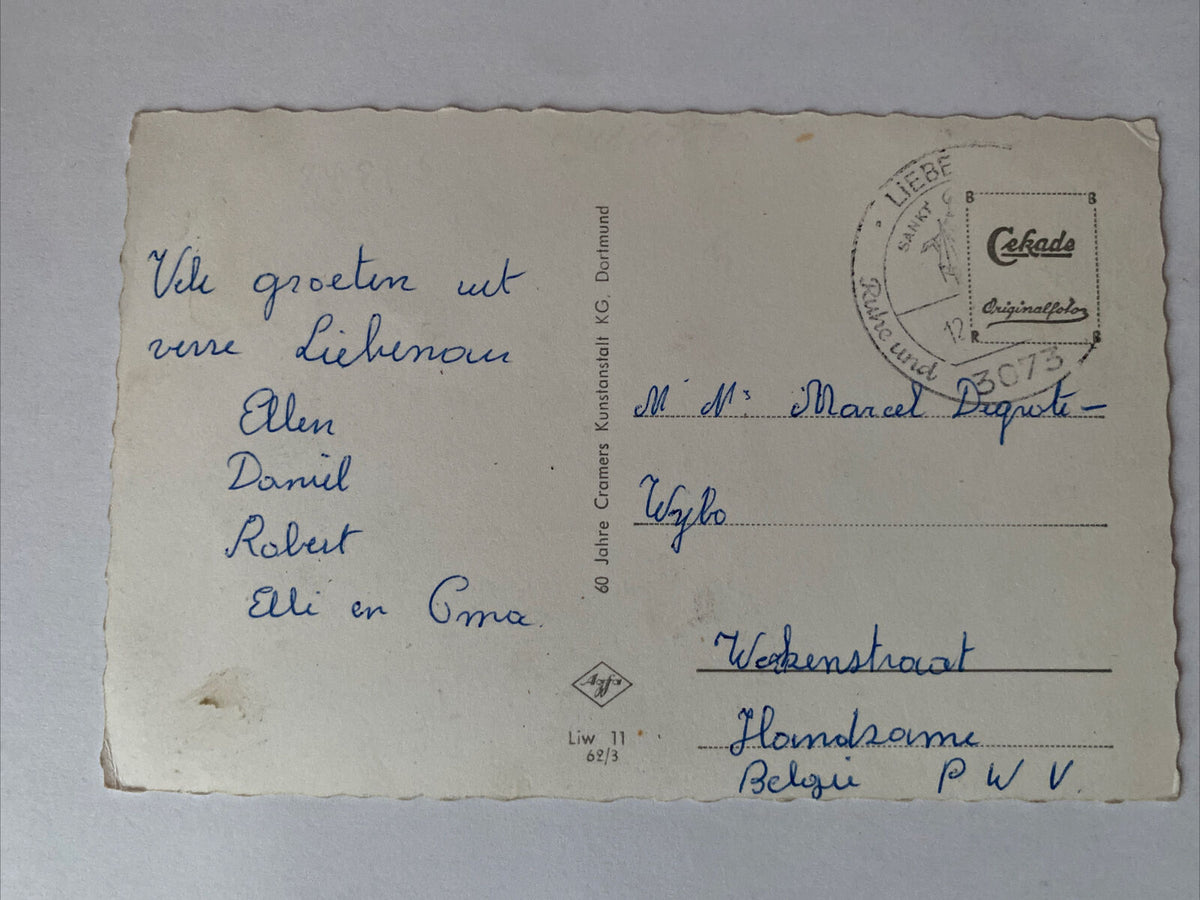 Vele groeten uit
verre Liebenau
Ellen
Daniël
Robert
Elli en Oma.
60 Jahre Cramers Kunstanstalt KG. Dortmund
Agfa
Liw 11
62/3
LIEBE
SANKT
Ruhe und
12
3073
B B
Cekade
Originalfoto
R B
M Mr Marcel Degrote-
Wybo
Werkenstraat
Handzame
België P W V.